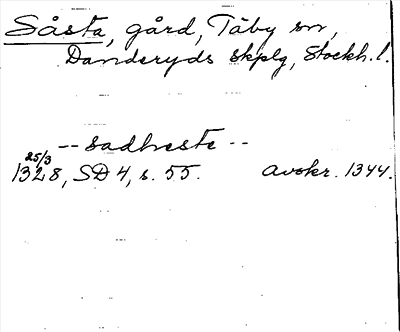 Såsta, gård, Täby sn,
Danderyds skplg, Stockh. l.
-- Sadhreste --
25/3
1328, SD 4, s. 55. avskr. 1344.